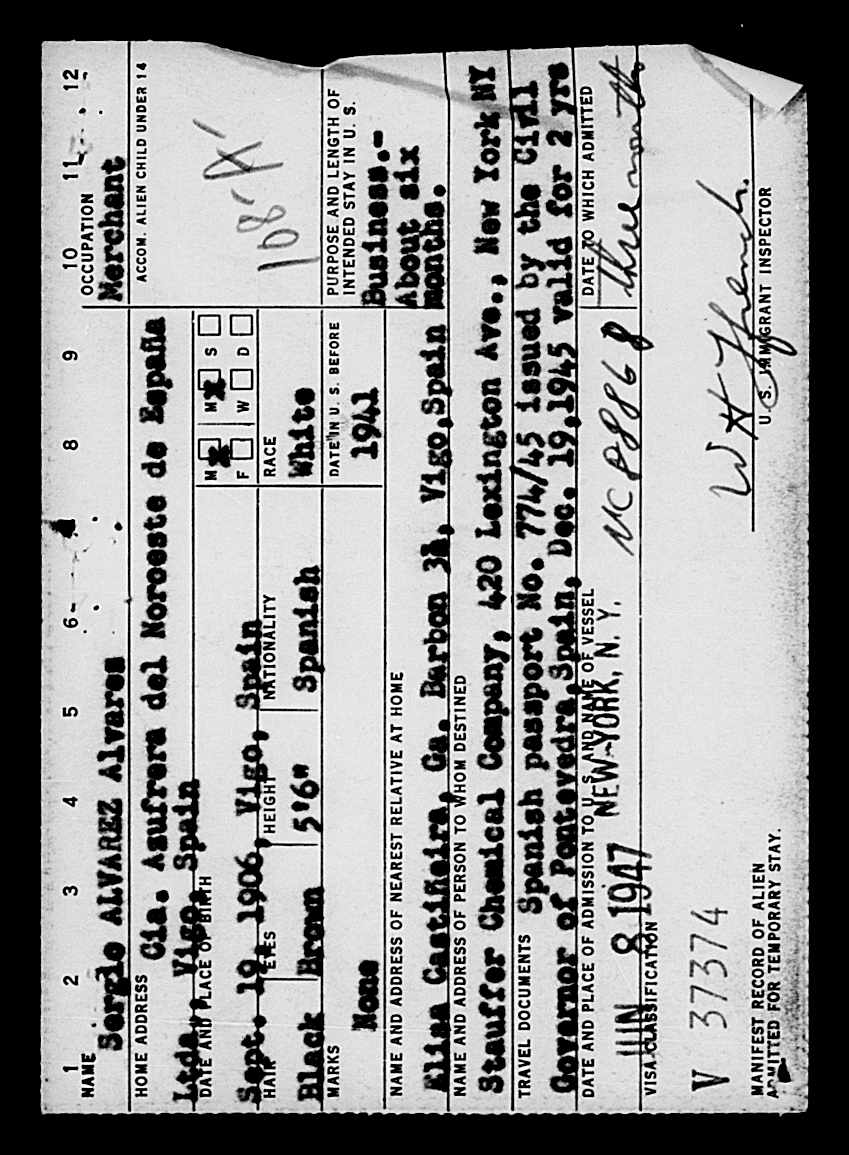 1 2 3 4 5 6 8 9 10 11 12
NAME
Sergio ALVAREZ Alvares
OCCUPATION
Merchant
HOME ADDRESS
Cia. Asufrera del Noroeste de España
Ltda., Vigo, Spain
ACCOM. ALIEN CHILD UNDER 14
DATE AND PLACE OF BIRTH
Sept. 19, 1906, Vigo, Spain
M X F M X S W D
108-A'
HAIR EYES HEIGHT NATIONALITY RACE
Black Brown 5'6" Spanish White
MARKS
None
DATE IN U. S. BEFORE
1941
PURPOSE AND LENGTH OF
INTENDED STAY IN U. S.
Business.-
About six
months.
NAME AND ADDRESS OF NEAREST RELATIVE AT HOME
Elisa Castiñeira, Ga. Barbon 3A, Vigo, Spain
NAME AND ADDRESS OF PERSON TO WHOM DESTINED
Stauffer Chemical Company, 420 Lexington Ave., New York NY
TRAVEL DOCUMENTS Spanish passport No. 774/45 issued by the Civil
Governor of Pontevedra, Spain, Dec. 19, 1945 valid for 2 yrs
DATE AND PLACE OF ADMISSION TO U. S. AND NAME OF VESSEL
JUN 8 1947 NEW YORK, N. Y. NC 88868
DATE TO WHICH ADMITTED
three months
VISA CLASSIFICATION
V 37374
W H French.
U. S. IMMIGRANT INSPECTOR
MANIFEST RECORD OF ALIEN
ADMITTED FOR TEMPORARY STAY.